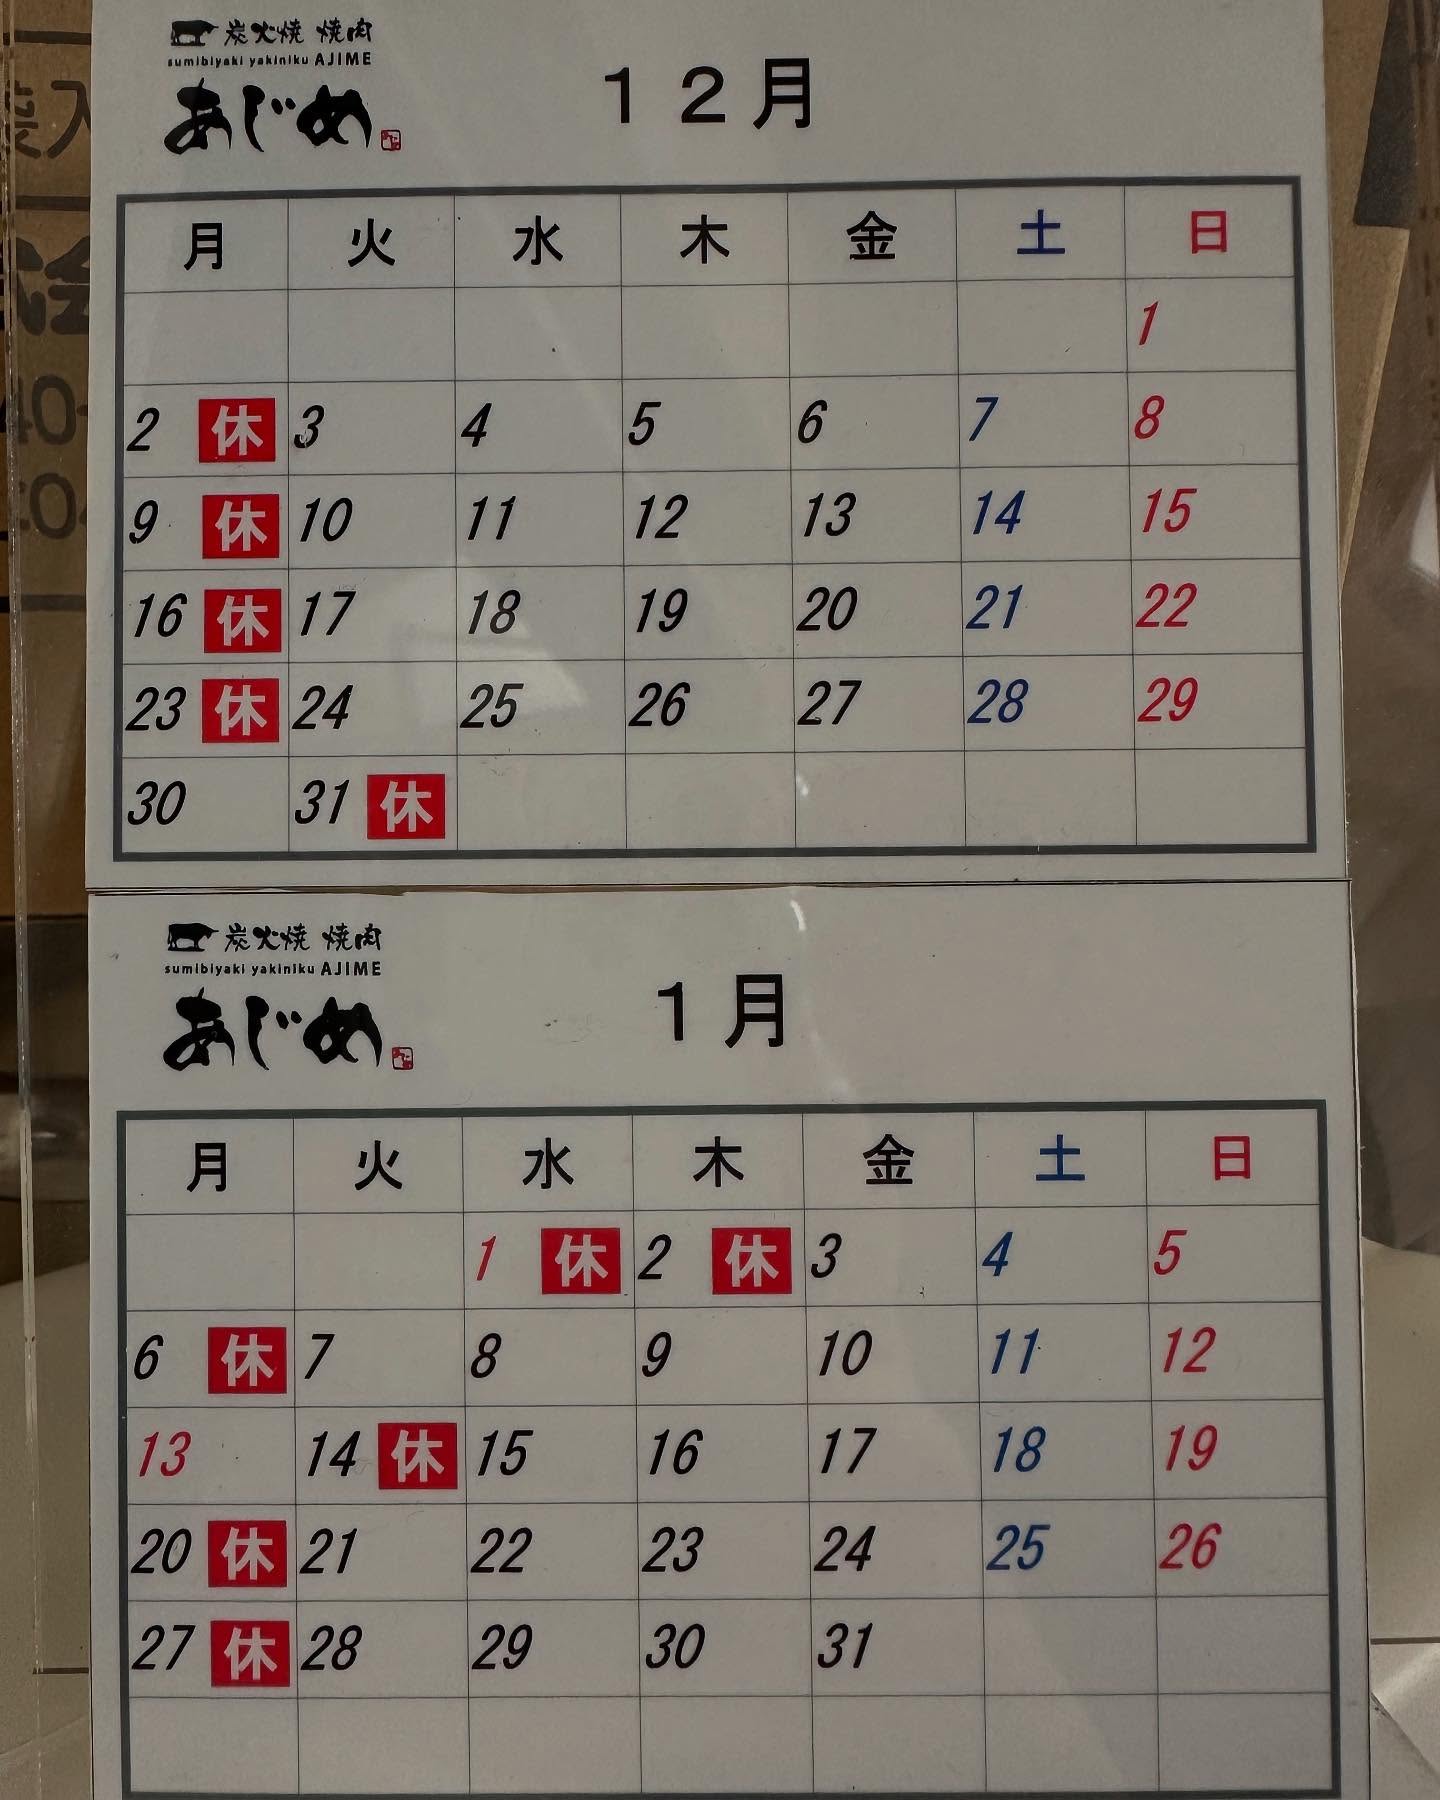 炭火焼 焼肉
sumibiyaki yakiniku AJIME
あじめ
12月
月 火 水 木 金 土 日
1
2 休 3 4 5 6 7 8
9 休 10 11 12 13 14 15
16 休 17 18 19 20 21 22
23 休 24 25 26 27 28 29
30 31 休
炭火焼 焼肉
sumibiyaki yakiniku AJIME
あじめ
1月
月 火 水 木 金 土 日
1 休 2 休 3 4 5
6 休 7 8 9 10 11 12
13 14 休 15 16 17 18 19
20 休 21 22 23 24 25 26
27 休 28 29 30 31